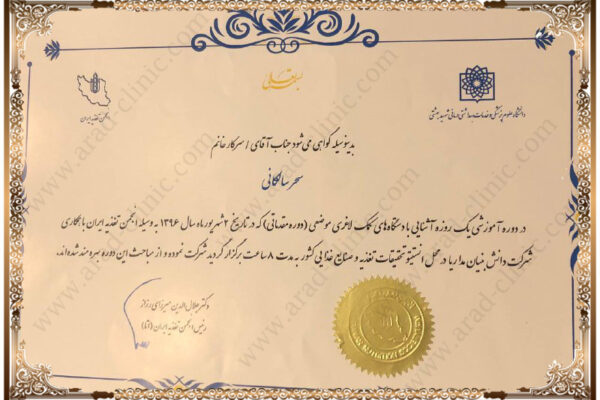 بسمه تعالی
دانشگاه علوم پزشکی و خدمات بهداشتی درمانی شهید بهشتی
انجمن تغذیه ایران
بدینوسیله گواهی می‌شود جناب آقای / سرکار خانم
سحر سالکانی
در دوره آموزشی یک روزه آشنایی با دستگاه‌های کمک لاغری موضعی (دوره مقدماتی) که در تاریخ ۲ شهریور ماه سال ۱۳۹۶ به وسیله انجمن تغذیه ایران با همکاری
شرکت دانش بنیان مداریا در محل انستیتو تحقیقات تغذیه و صنایع غذایی کشور به مدت ۸ ساعت برگزار گردید شرکت نموده و از مباحث این دوره بهره مند شده‌اند.
دکتر جلال الدین میرزای رزاز
رئیس انجمن تغذیه ایران (اتا)
www.arad-clinic.com